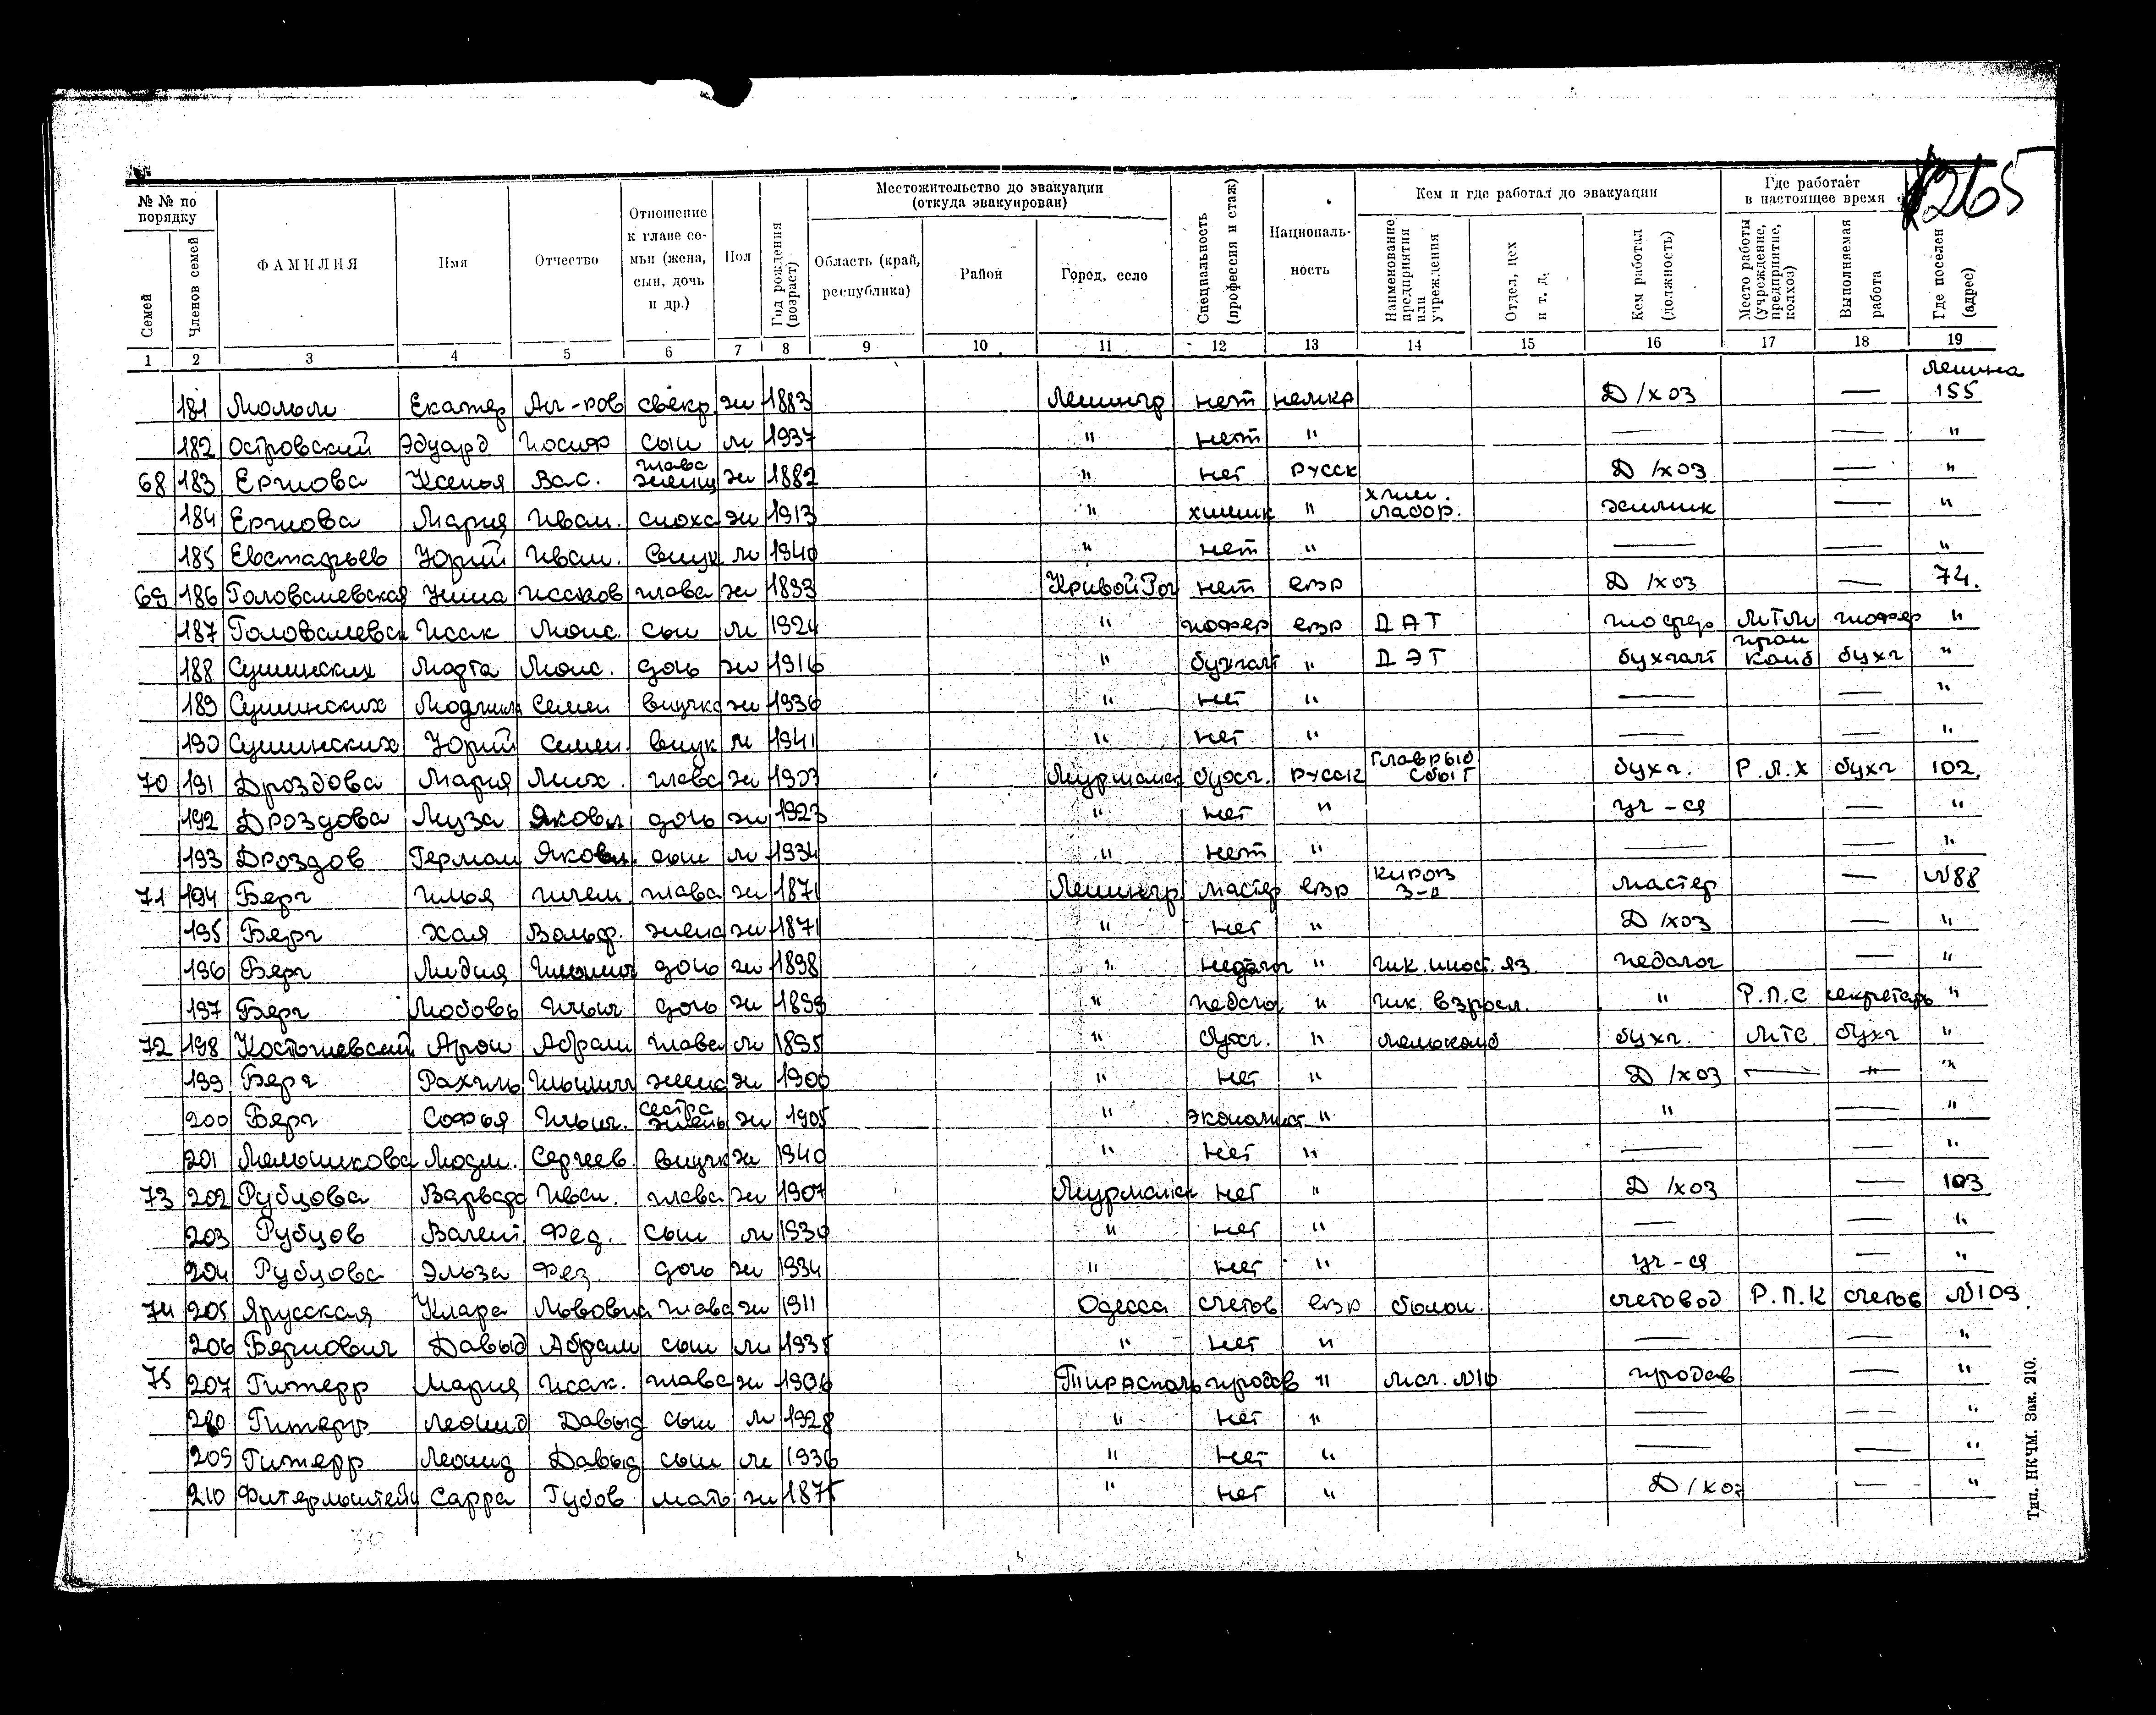 265
№ № по порядку
Семей
Членов семей
ФАМИЛИЯ
Имя
Отчество
Отношение к главе семьи (жена, сын, дочь и др.)
Пол
Год рождения (возраст)
Местожительство до эвакуации (откуда эвакуирован)
Область (край, республика)
Район
Город, село
Специальность (профессия и стаж)
Националь-
ность
Кем и где работал до эвакуации
Наименование предприятия или учреждения
Отдел, цех и т. д.
Кем работал (должность)
Где работает в настоящее время
Место работы (учреждение, предприятие, колхоз)
Выполняемая работа
Где поселен (адрес)
1 2 3 4 5 6 7 8 9 10 11 12 13 14 15 16 17 18 19
Ленина
181 Екатер Ал-ров свекр ж 1883 Ленингр нет немка Д/хоз — 155
182 Островский Эдуард Иосиф сын м 1937 " нет " — — "
68 183 Ксенья Вас. глава ж 1882 " нет русск Д/хоз — "
184 Мария Иван. сноха ж 1913 " химик " хим. лабор. химик — "
185 Евстафьев Юрий Иван. внук м 1940 " нет " — — "
69 186 Исаков глава ж 1893 Кривой Рог нет евр Д/хоз — 74.
187 Исак Моис. сын м 1924 " шофер евр ДАТ шофер МТМ шофер "
188 Сушинских Марта Моис. дочь ж 1916 " бухгалт " ДЭТ бухгалт пром комб бухг "
189 Сушинских Людмила Семен внучка ж 1936 " нет " — — "
190 Сушинских Юрий Семен. внук м 1941 " нет " — — "
70 191 Дроздова Мария Мих. глава ж 1903 Мурманск бухг. русск Главрыб сбыт бухг. Р.Л.Х бухг 102
192 Дроздова Муза Яковл дочь ж 1923 " нет " уч-ся — "
193 Дроздов Герман Яковл. сын м 1934 " нет " — — "
71 194 Берг Илья глава ж 1871 Ленингр. мастер евр Киров з-д мастер — №88
195 Берг Хая Вольф. жена ж 1871 " нет " Д/хоз — "
196 Берг Лидия дочь ж 1898 " педагог " шк. иност. яз. педагог — "
197 Берг Любовь Ильич дочь ж 1899 " педагог " шк. взросл. " Р.П.С секретарь "
72 198 Арон Абрам глава м 1895 " бухг. " бухг. МТС. бухг "
199 Берг Рахиль жена ж 1900 " нет " Д/хоз — " "
200 Берг Софья Ильич. сестра жены ж 1905 " экономист " " — "
201 Мельникова Людм. Сергеев. внучка ж 1940 " нет " — — "
73 202 Рубцова Варвара Иван. глава ж 1907 Мурманск нет " Д/хоз — 103
203 Рубцов Фед. сын м 1930 " нет " — — "
204 Рубцова Эльза Фед. дочь ж 1934 " нет " уч-ся — "
74 205 Ярусская Клара Львовна глава ж 1911 Одесса счетов евр счетовод Р.П.К счетов №109
206 Давыд Абрам сын м 1938 " нет " — — "
75 207 Мария Исак. глава ж 1906 Тирасполь продав " маг. №10 продав — "
Леонид Давыд сын м 1928 " нет " — — "
209 Леонид Давыд сын м 1936 " нет " — — "
210 Сарра мать ж 1875 " нет " Д/хоз — "
30
Тип. НКЧМ. Зак. 210.